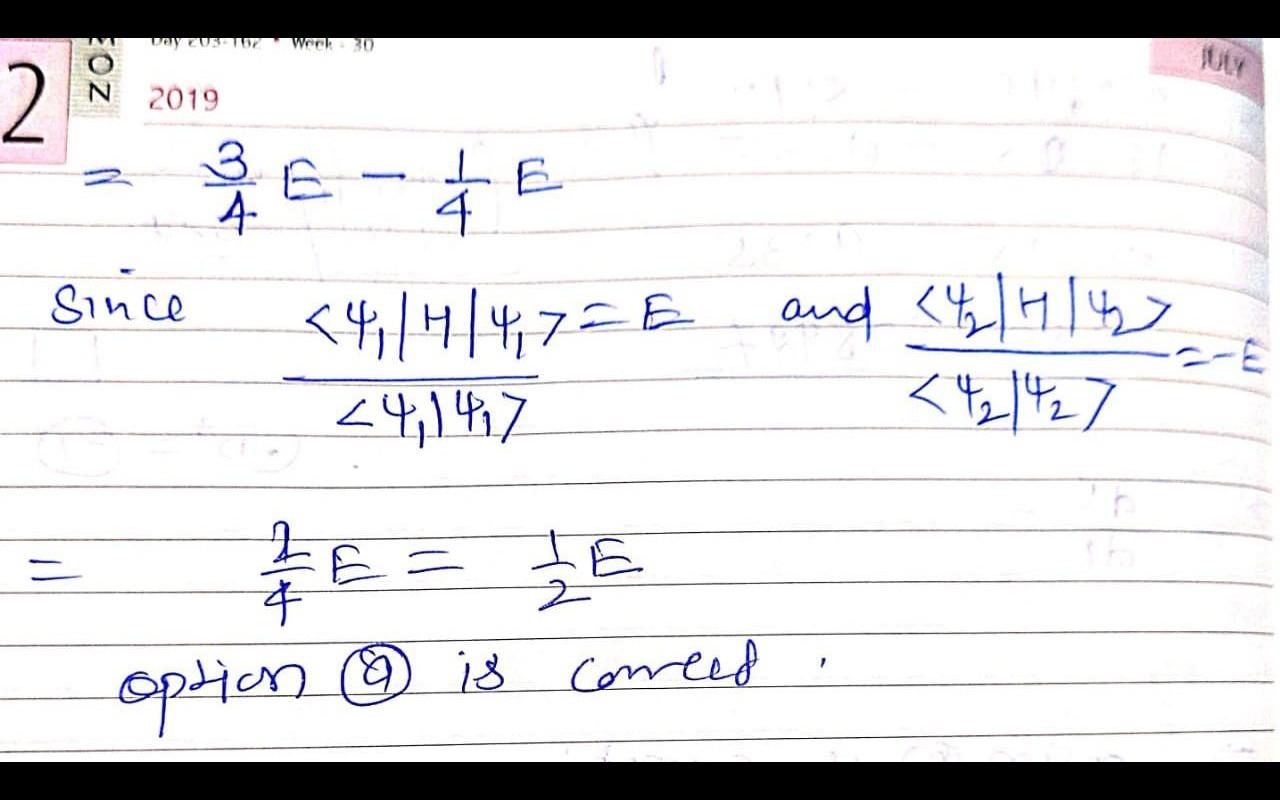 Day 203-162 • Week - 30
2 MON JULY
2019
= 3/4 E - 1/4 E
Since <ψ₁|H|ψ₁> / <ψ₁|ψ₁> = E and <ψ₂|H|ψ₂> / <ψ₂|ψ₂> = -E
= 2/4 E = 1/2 E
option ⓐ is correct.